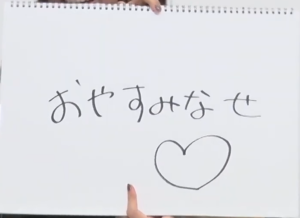 おやすみなせ